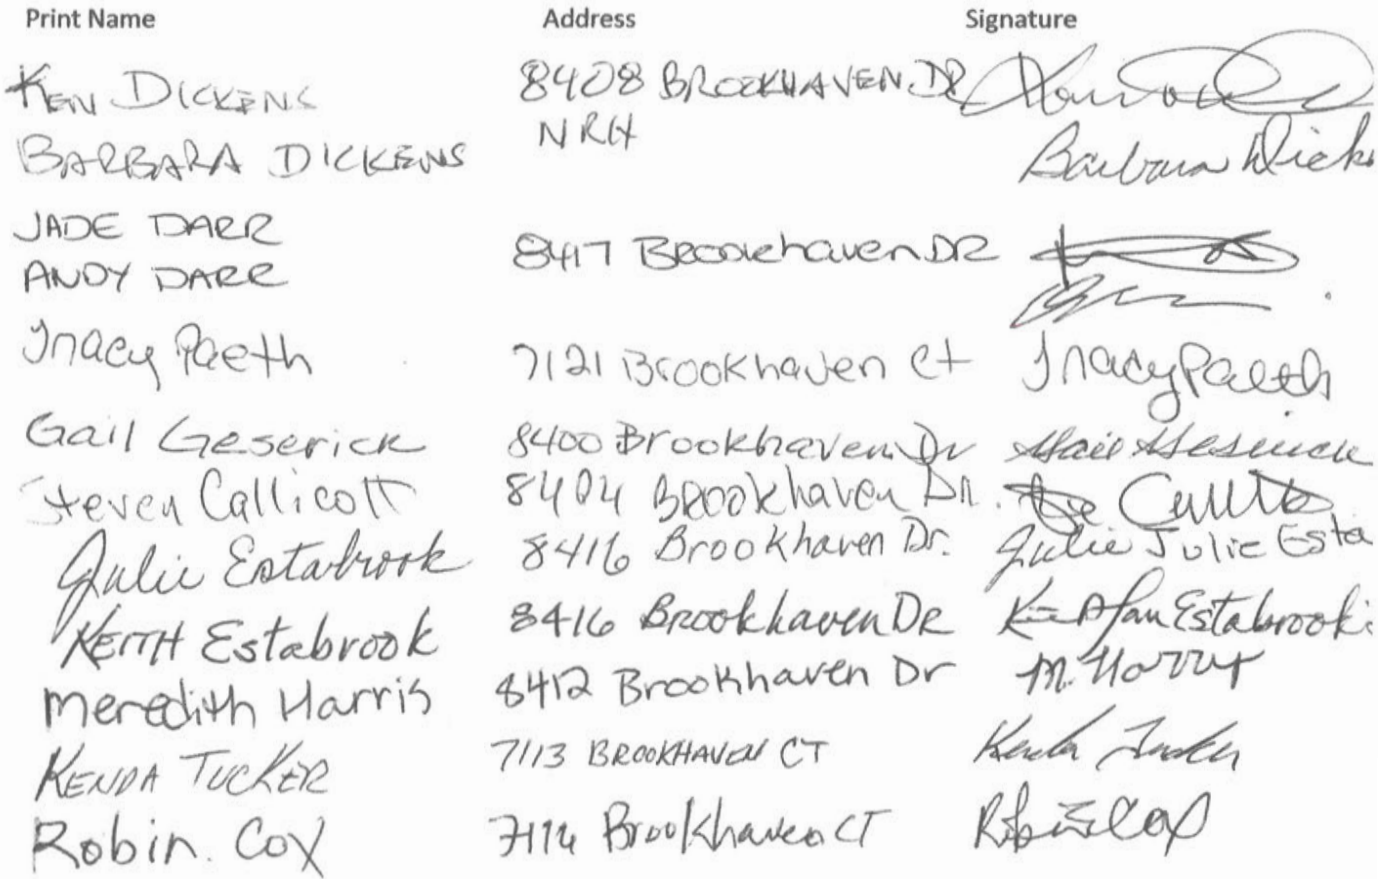 Print Name Address Signature
KEN DICKENS 8408 BROOKHAVEN DR
NRH
BARBARA DICKENS Barbara Dick
JADE DARR
8417 Brookhaven DR
ANDY DARR
Tracy Paeth 7121 Brookhaven Ct Tracy Paeth
Gail Geserick 8400 Brookhaven Dr Gail Geserick
Steven Callicott 8404 Brookhaven Dr.
Julie Estabrook 8416 Brookhaven Dr. Julie Julie Esta
KEITH Estabrook 8416 Brookhaven DR Estabrook
Meredith Harris 8412 Brookhaven Dr M. Harris
KENDA TUCKER 7113 BROOKHAVEN CT Kenda Tucker
Robin. Cox Brookhaven CT Robin Cox